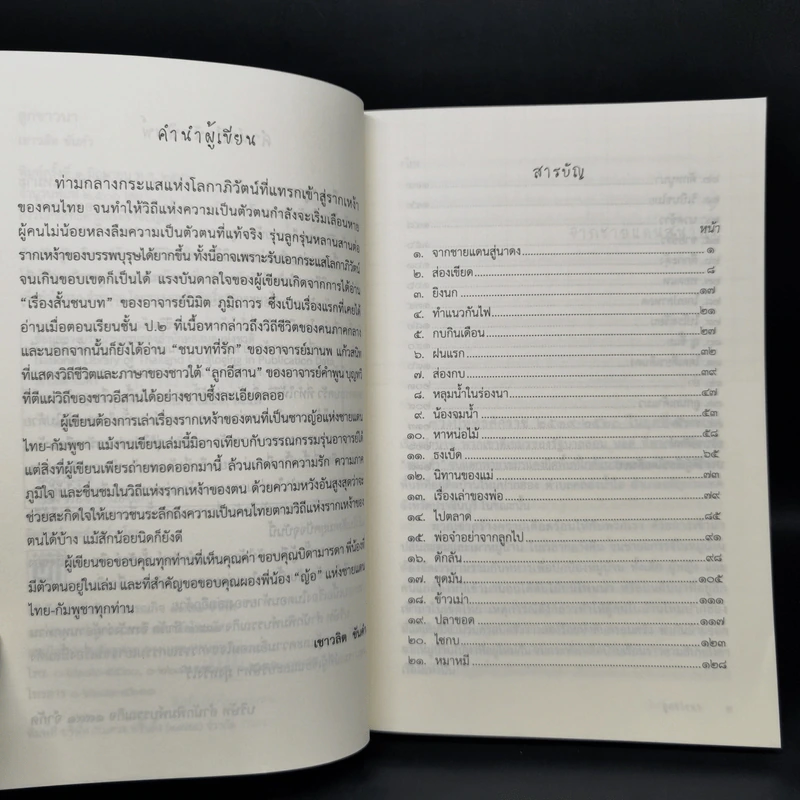 คำนำผู้เขียน
ท่ามกลางกระแสแห่งโลกาภิวัตน์ที่แทรกเข้าสู่รากเหง้า
ของคนไทย จนทำให้วิถีแห่งความเป็นตัวตนกำลังจะเริ่มเลือนหาย
ผู้คนไม่น้อยหลงลืมความเป็นตัวตนที่แท้จริง รุ่นลูกรุ่นหลานสานต่อ
รากเหง้าของบรรพบุรุษได้ยากขึ้น ทั้งนี้อาจเพราะรับเอากระแสโลกาภิวัตน์
จนเกินขอบเขตก็เป็นได้ แรงบันดาลใจของผู้เขียนเกิดจากการได้อ่าน
“เรื่องสั้นชนบท” ของอาจารย์นิมิต ภูมิถาวร ซึ่งเป็นเรื่องแรกที่เคยได้
อ่านเมื่อตอนเรียนชั้น ป.๒ ที่เนื้อหากล่าวถึงวิถีชีวิตของคนภาคกลาง
และนอกจากนั้นก็ยังได้อ่าน “ชนบทที่รัก” ของอาจารย์มานพ แก้วสนิท
ที่แสดงวิถีชีวิตและภาษาของชาวใต้ “ลูกอีสาน” ของอาจารย์คำพูน บุญทวี
ที่ตีแผ่วิถีของชาวอีสานได้อย่างซาบซึ้งละเอียดลออ
ผู้เขียนต้องการเล่าเรื่องรากเหง้าของตนที่เป็นชาวญ้อแห่งชายแดน
ไทย-กัมพูชา แม้งานเขียนเล่มนี้มิอาจเทียบกับวรรณกรรมรุ่นอาจารย์ได้
แต่สิ่งที่ผู้เขียนเพียรถ่ายทอดออกมานี้ ล้วนเกิดจากความรัก ความภาค
ภูมิใจ และชื่นชมในวิถีแห่งรากเหง้าของตน ด้วยความหวังอันสูงสุดว่าจะ
ช่วยสะกิดใจให้เยาวชนระลึกถึงความเป็นคนไทยตามวิถีแห่งรากเหง้าของ
ตนได้บ้าง แม้สักน้อยนิดก็ยังดี
ผู้เขียนขอขอบคุณทุกท่านที่เห็นคุณค่า ขอบคุณบิดามารดา พี่น้องที่
มีตัวตนอยู่ในเล่ม และที่สำคัญขอขอบคุณผองพี่น้อง “ญ้อ” แห่งชายแดน
ไทย-กัมพูชาทุกท่าน
เชาวลิต
สารบัญ
หน้า
๑. จากชายแดนสู่นาดง ๑
๒. ส่องเขียด ๘
๓. ยิงนก ๑๗
๔. ทำแนวกันไฟ ๒๑
๕. กบกินเดือน ๒๗
๖. ฝนแรก ๓๒
๗. ส่องกบ ๓๙
๘. หลุมน้ำในร่องนา ๔๗
๙. น้องจมน้ำ ๕๓
๑๐. หาหน่อไม้ ๕๘
๑๑. ธงเบ็ด ๖๕
๑๒. นิทานของแม่ ๗๓
๑๓. เรื่องเล่าของพ่อ ๗๙
๑๔. ไปตลาด ๘๕
๑๕. พ่อจ๋าอย่าจากลูกไป ๙๑
๑๖. ดักลัน ๙๘
๑๗. ขุดมัน ๑๐๕
๑๘. ข้าวเม่า ๑๑๑
๑๙. ปลาขอด ๑๑๗
๒๐. ไซกบ ๑๒๓
๒๑. หมาหมี ๑๒๘